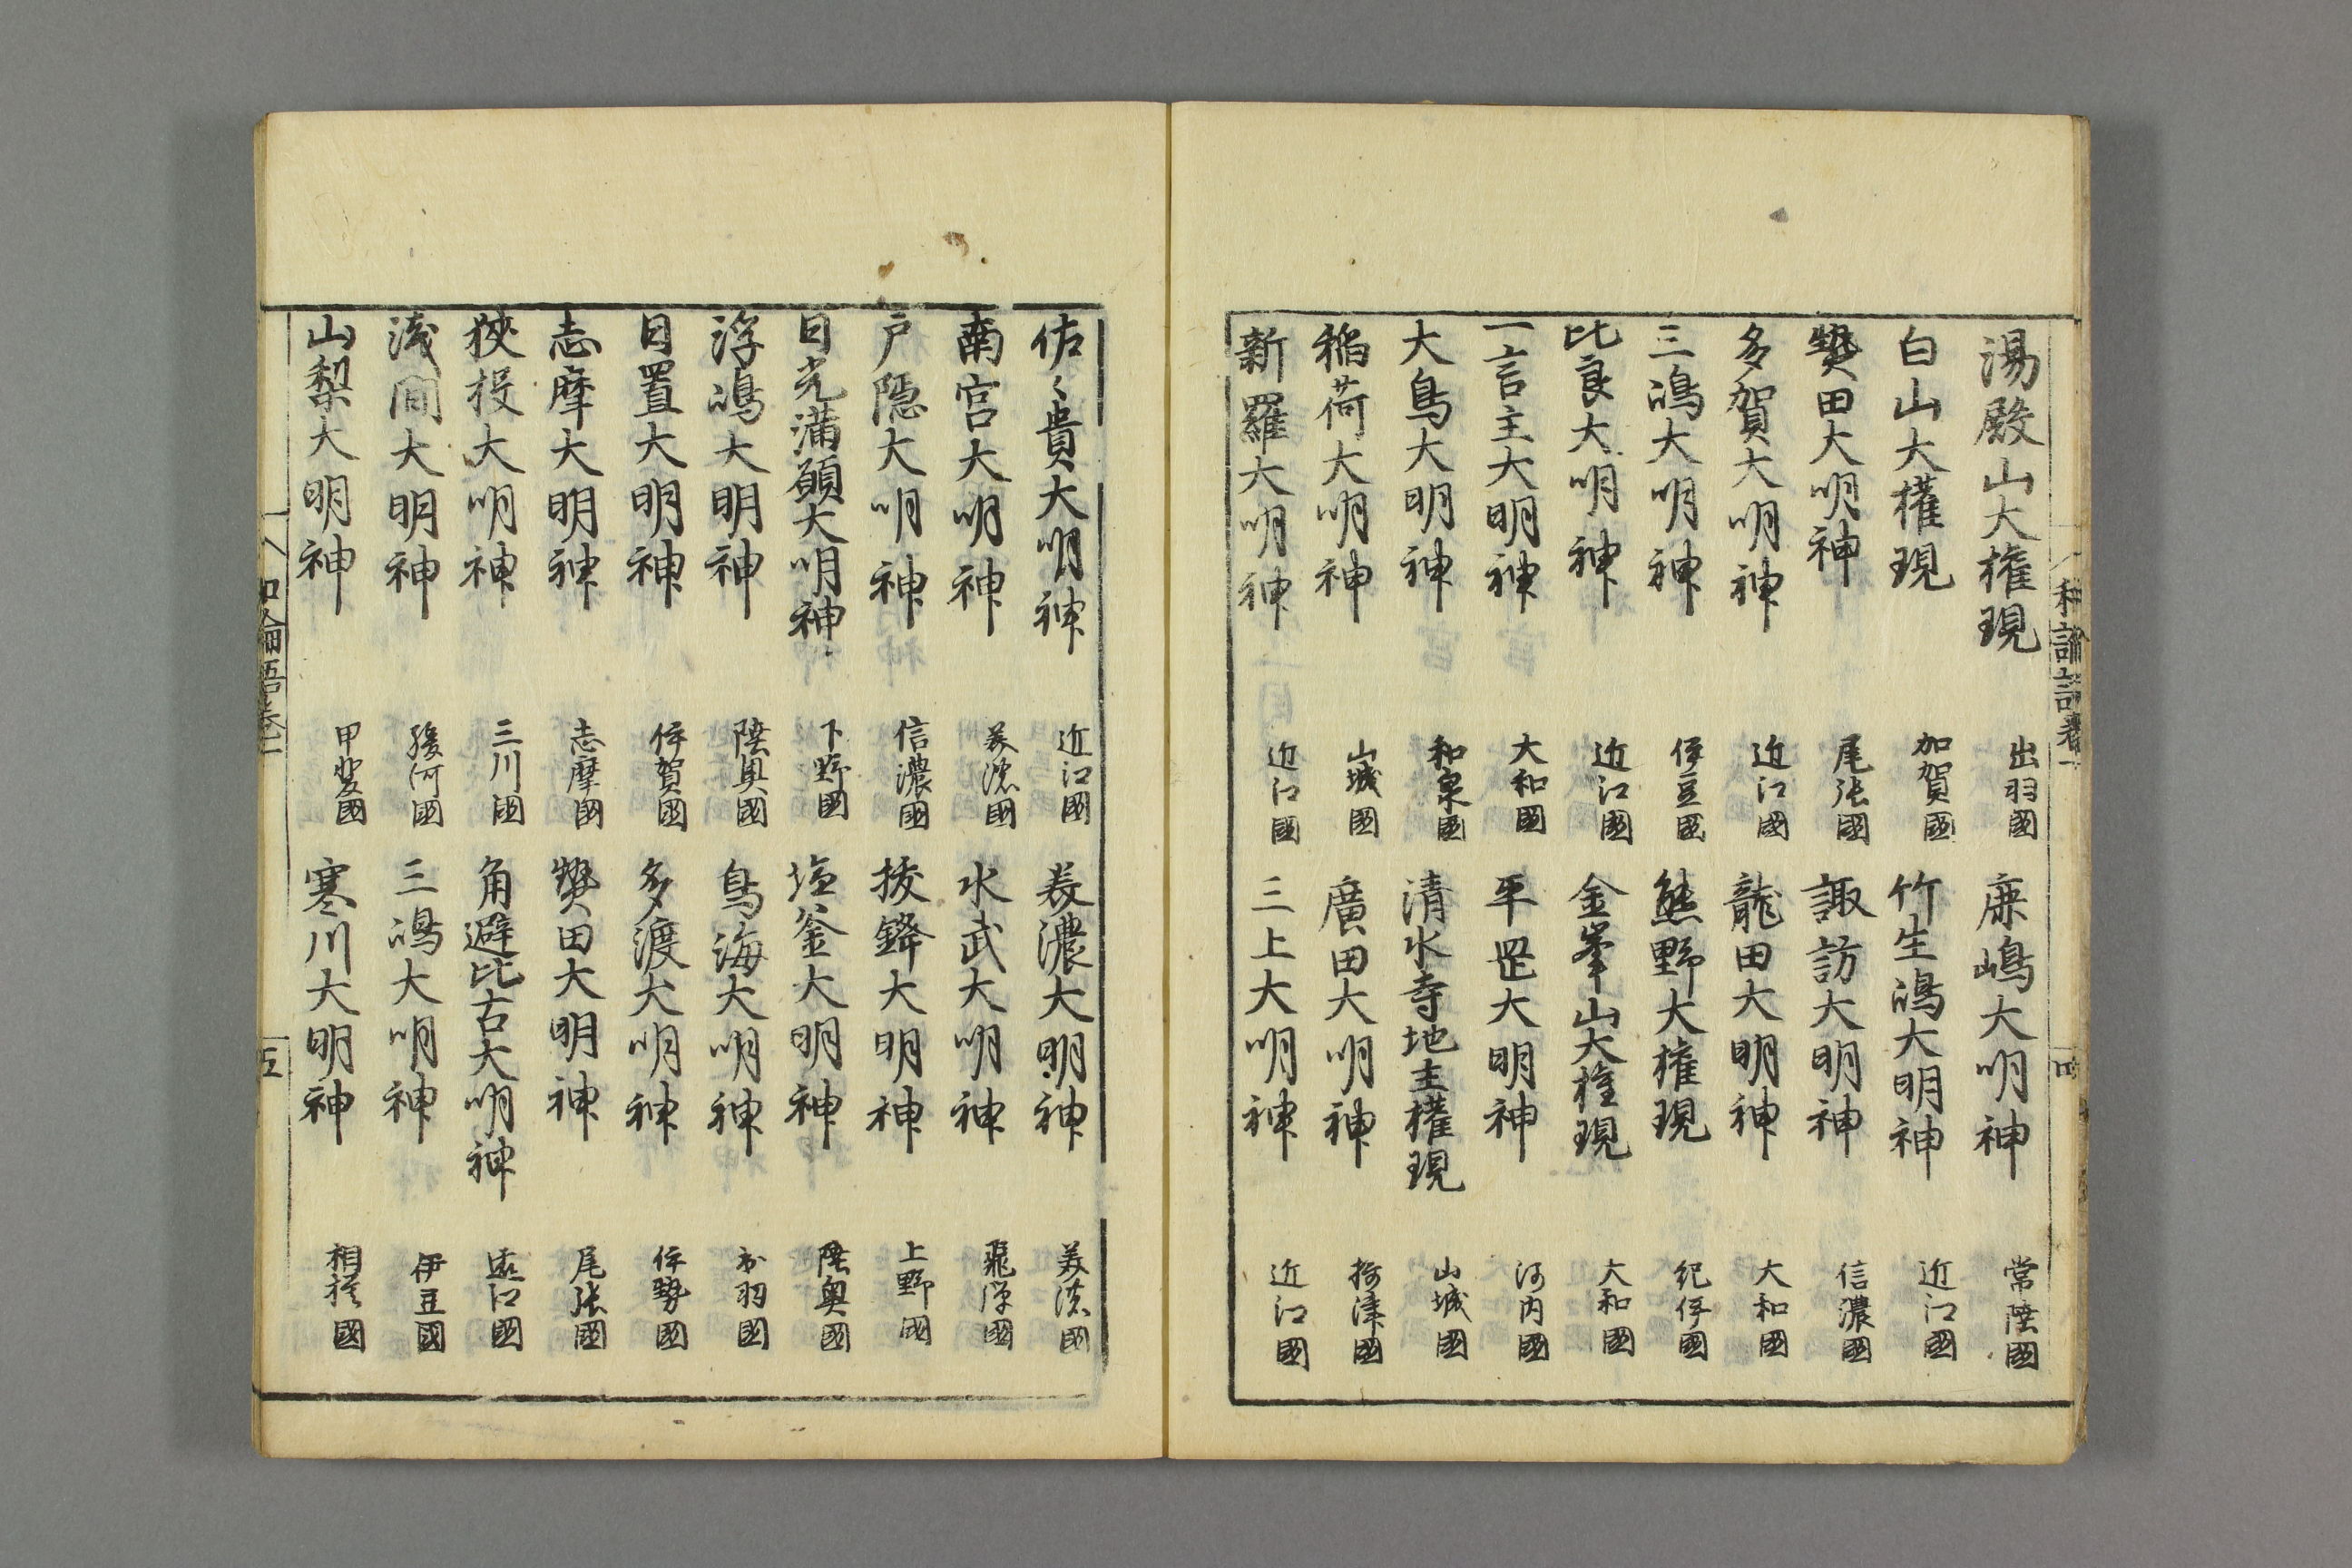 湯殿山大権現 出羽國 鹿嶋大明神 常陸國
白山大權現 加賀國 竹生嶋大明神 近江國
𤍠田大明神 尾張國 諏訪大明神 信濃國
多賀大明神 近江國 龍田大明神 大和國
三嶋大明神 伊豆國 熊野大権現 紀伊國
比良大明神 近江國 金峯山大権現 大和國
一言主大明神 大和國 平岡大明神 河内國
大鳥大明神 和泉國 清水寺地主權現 山城國
稲荷大明神 山城國 廣田大明神 摂津國
新羅大明神 近江國 三上大明神 近江國
和論語巻一 四
佐〻貴大明神 近江國 美濃大明神 美濃國
南宮大明神 美濃國 水武大明神 飛彈國
戸隠大明神 信濃國 抜鋒大明神 上野國
日光満願大明神 下野國 塩釜大明神 陸奥國
浮嶋大明神 陸奥國 鳥海大明神 出羽國
日置大明神 伊賀國 多渡大明神 伊勢國
志摩大明神 志摩國 𤍠田大明神 尾張國
狭投大明神 三川國 角避比古大明神 遠江國
浅間大明神 駿河國 三嶋大明神 伊豆國
山梨大明神 甲斐國 寒川大明神 相模國
和論語巻一 五